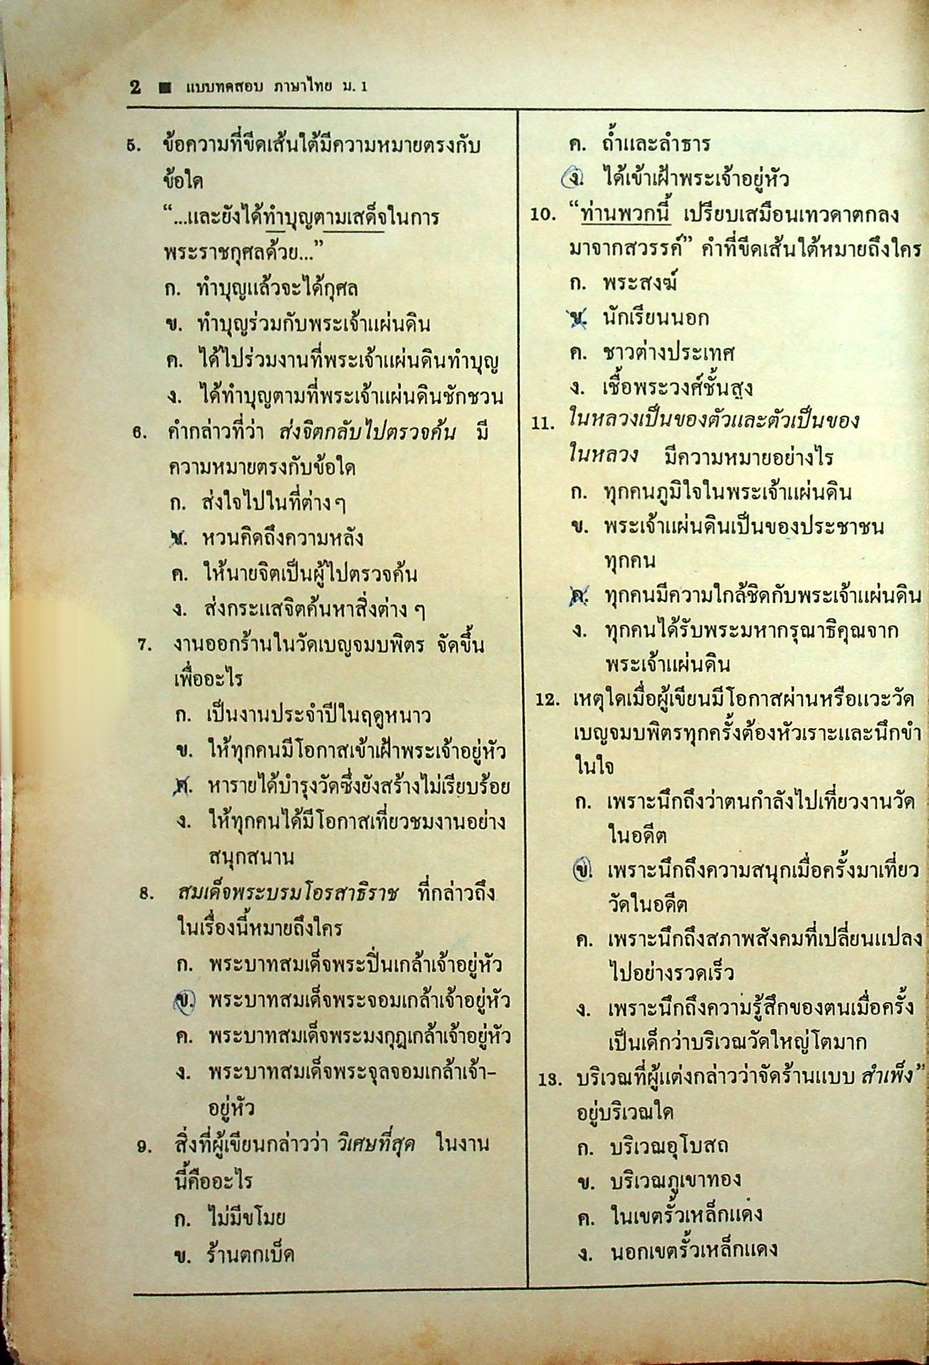 2 ■ แบบทดสอบ ภาษาไทย ม. 1
5. ข้อความที่ขีดเส้นใต้มีความหมายตรงกับ
ข้อใด
“...และยังได้ทำบุญตามเสด็จในการ
พระราชกุศลด้วย...”
ก. ทำบุญแล้วจะได้กุศล
ข. ทำบุญร่วมกับพระเจ้าแผ่นดิน
ค. ได้ไปร่วมงานที่พระเจ้าแผ่นดินทำบุญ
ง. ได้ทำบุญตามที่พระเจ้าแผ่นดินชักชวน
6. คำกล่าวที่ว่า ส่งจิตกลับไปตรวจค้น มี
ความหมายตรงกับข้อใด
ก. ส่งใจไปในที่ต่าง ๆ
ข. หวนคิดถึงความหลัง
ค. ให้นายจิตเป็นผู้ไปตรวจค้น
ง. ส่งกระแสจิตค้นหาสิ่งต่าง ๆ
7. งานออกร้านในวัดเบญจมบพิตร จัดขึ้น
เพื่ออะไร
ก. เป็นงานประจำปีในฤดูหนาว
ข. ให้ทุกคนมีโอกาสเข้าเฝ้าพระเจ้าอยู่หัว
ค. หารายได้บำรุงวัดซึ่งยังสร้างไม่เรียบร้อย
ง. ให้ทุกคนได้มีโอกาสเที่ยวชมงานอย่าง
สนุกสนาน
8. สมเด็จพระบรมโอรสาธิราช ที่กล่าวถึง
ในเรื่องนี้หมายถึงใคร
ก. พระบาทสมเด็จพระปิ่นเกล้าเจ้าอยู่หัว
ข. พระบาทสมเด็จพระจอมเกล้าเจ้าอยู่หัว
ค. พระบาทสมเด็จพระมงกุฎเกล้าเจ้าอยู่หัว
ง. พระบาทสมเด็จพระจุลจอมเกล้าเจ้า-
อยู่หัว
9. สิ่งที่ผู้เขียนกล่าวว่า วิเศษที่สุด ในงาน
นี้คืออะไร
ก. ไม่มีขโมย
ข. ร้านตกเบ็ด
ค. ถ้ำและลำธาร
ง. ได้เข้าเฝ้าพระเจ้าอยู่หัว
10. “ท่านพวกนี้ เปรียบเสมือนเทวดาตกลง
มาจากสวรรค์” คำที่ขีดเส้นใต้หมายถึงใคร
ก. พระสงฆ์
ข. นักเรียนนอก
ค. ชาวต่างประเทศ
ง. เชื้อพระวงศ์ชั้นสูง
11. ในหลวงเป็นของตัวและตัวเป็นของ
ในหลวง มีความหมายอย่างไร
ก. ทุกคนภูมิใจในพระเจ้าแผ่นดิน
ข. พระเจ้าแผ่นดินเป็นของประชาชน
ทุกคน
ค. ทุกคนมีความใกล้ชิดกับพระเจ้าแผ่นดิน
ง. ทุกคนได้รับพระมหากรุณาธิคุณจาก
พระเจ้าแผ่นดิน
12. เหตุใดเมื่อผู้เขียนมีโอกาสผ่านหรือแวะวัด
เบญจมบพิตรทุกครั้งต้องหัวเราะและนึกขำ
ในใจ
ก. เพราะนึกถึงว่าตนกำลังไปเที่ยวงานวัด
ในอดีต
ข. เพราะนึกถึงความสนุกเมื่อครั้งมาเที่ยว
วัดในอดีต
ค. เพราะนึกถึงสภาพสังคมที่เปลี่ยนแปลง
ไปอย่างรวดเร็ว
ง. เพราะนึกถึงความรู้สึกของตนเมื่อครั้ง
เป็นเด็กว่าบริเวณวัดใหญ่โตมาก
13. บริเวณที่ผู้แต่งกล่าวว่าจัดร้านแบบ สำเพ็ง”
อยู่บริเวณใด
ก. บริเวณอุโบสถ
ข. บริเวณภูเขาทอง
ค. ในเขตรั้วเหล็กแดง
ง. นอกเขตรั้วเหล็กแดง